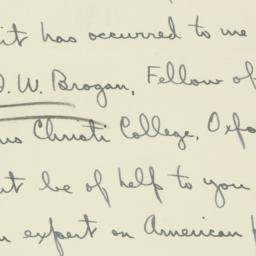 it has occurred to me
D. W. Brogan, Fellow of
us Christi College, Oxfo
ut be of help to you
n expert on American